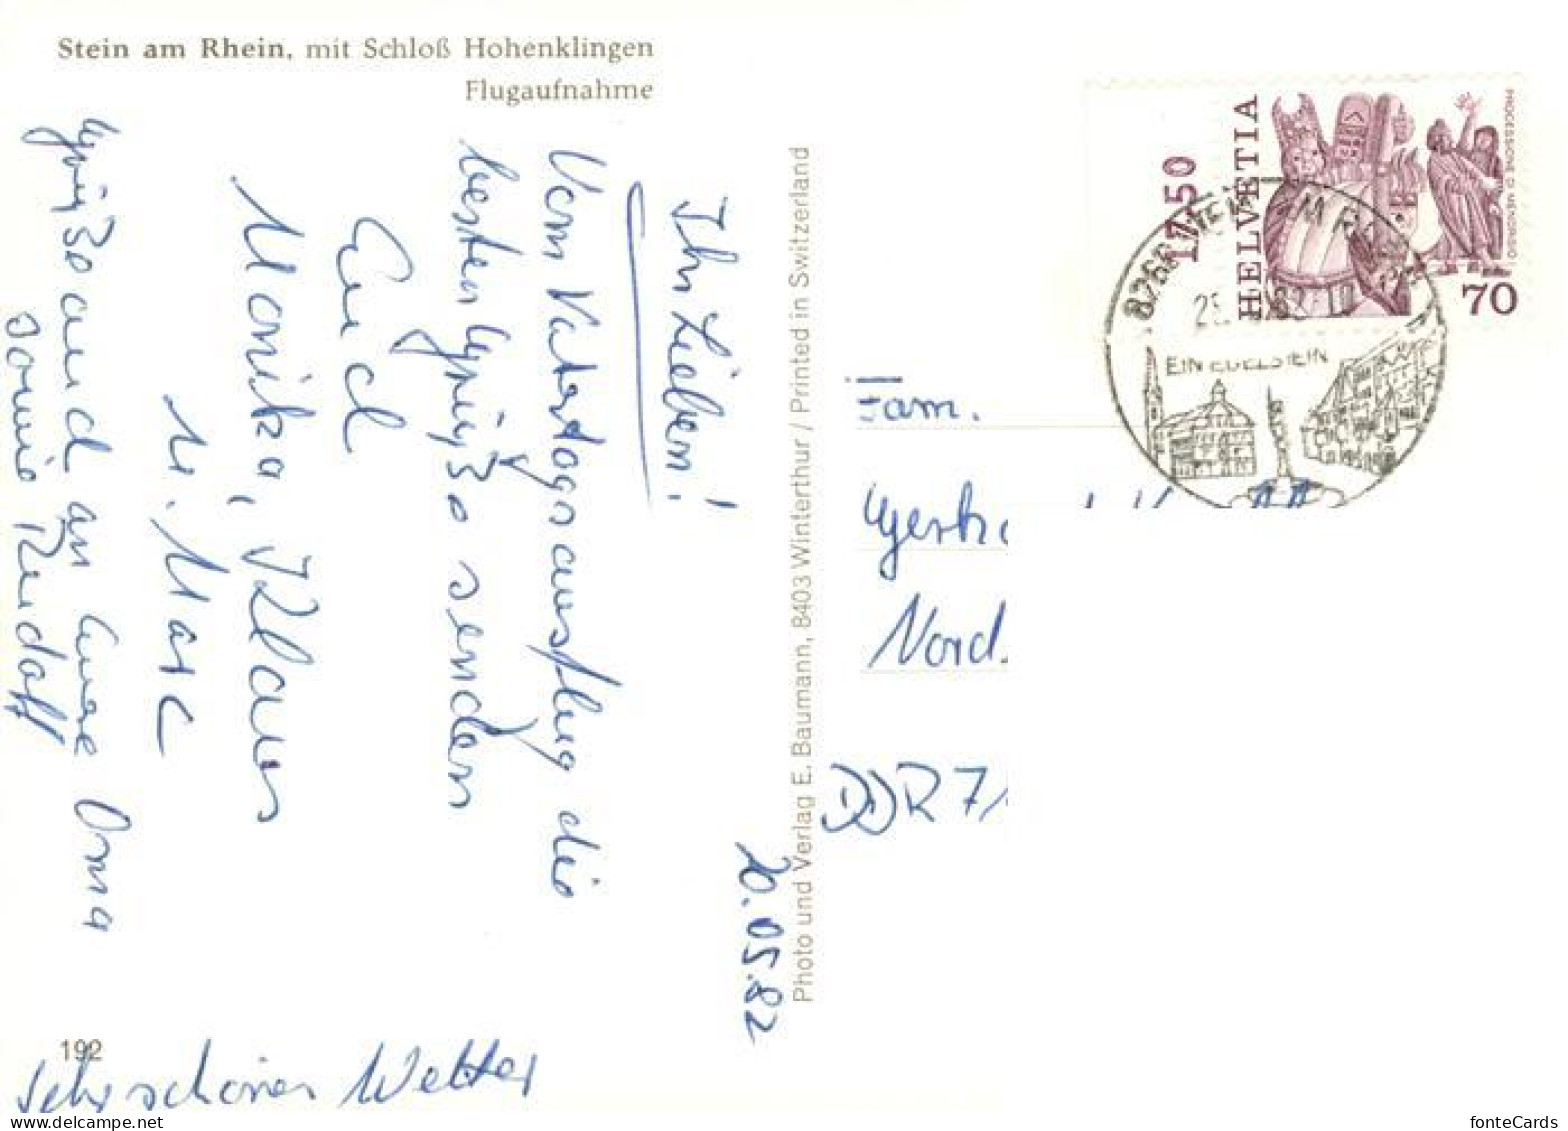 Stein am Rhein, mit Schloß Hohenklingen
Flugaufnahme
20.05.82
Ihr Lieben!
Vom Vatertagsausflug die
besten Grüße senden
Euch
Monika, Klaus
u. Marc
Grüße auch an Eure Oma
sowie Rudolf
Sehr schönes Wetter
192
Photo und Verlag E. Baumann, 8403 Winterthur / Printed in Switzerland
17.50
HELVETIA
PROCESSIONE DI MENDRISIO
70
8260 STEIN AM RHEIN
EIN EDELSTEIN
Fam.
Nord
DDR 7
fonteCards